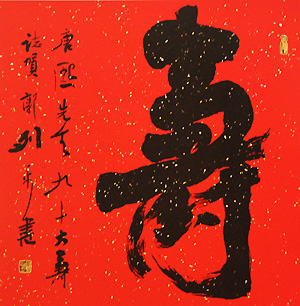 壽
唐熙先生九十大壽
誌賀郭列平書